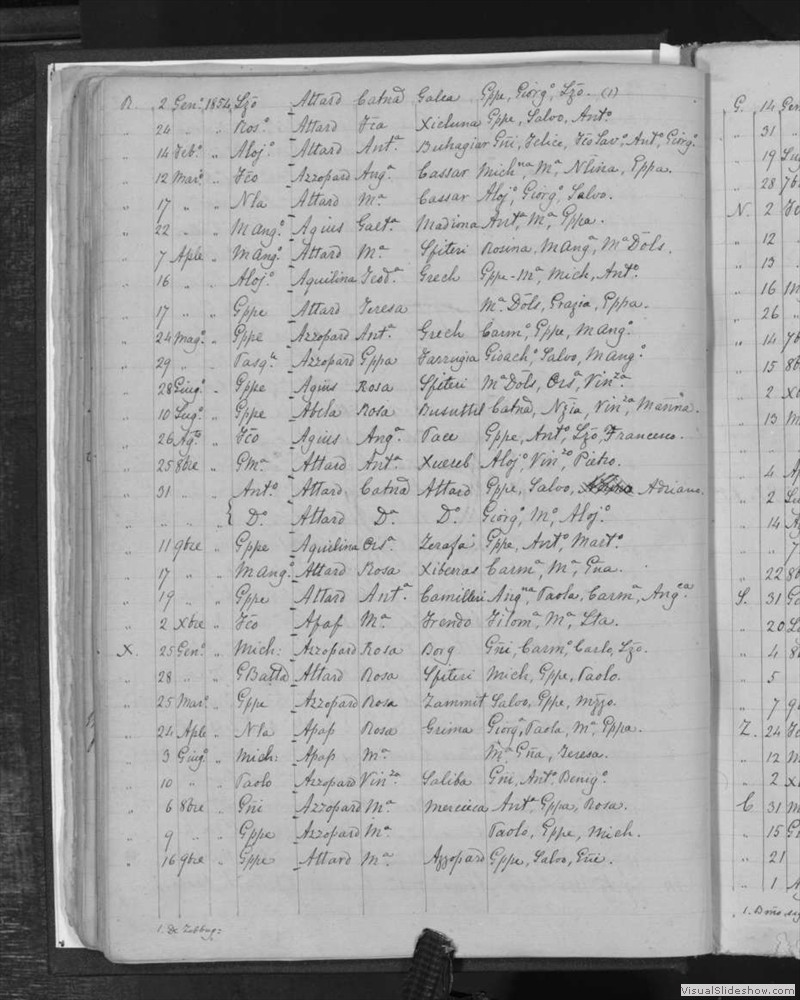 R. 2 Genº 1854 Lzō Attard Catnā Galea Gppe, Giorgº, Lzō. (1)
" 24 " " Rosº Attard Fca Xicluna Gppe, Salvo, Antº
" 14 Febº " Alojº Attard Antª Buhagiar Gñi, Felice, Salvº, Antº, Giorgº
" 12 Marº " Fcō Azzopard Angª Cassar Michna, Mª, Nlina, Gppa.
" 17 " " Nla Attard Mª Cassar Alojº, Giorgº, Salvo.
" 22 " " M Angº Agius Gaetª Madiona Antª, Mª, Gppa.
" 7 Aple " M Angº Attard Mª Spiteri Rosina, M Angª, Mª Dōls.
" 16 " " Alojº Aquilina Teodª Grech Gppe-Mª, Mich, Antº
" 17 " " Gppe Attard Teresa Mª Dōls, Grazia, Gppa.
" 24 Magº " Gppe Azzopard Antª Grech Carmº, Gppe, M Angº
" 29 " " Pasqª Azzopard Gppa Farrugia Gioachº, Salvo, M Angº
" 28 Giugº " Gppe Agius Rosa Spiteri Mª Dōls, Orsª, Vinza
" 10 Lugº " Gppe Abela Rosa Busuttil Catnā, Nzia, Vinza, Marina.
" 26 Agº " Fcō Agius Angª Pace Gppe, Antº, Lzō, Francesco.
" 25 8bre " Gmª Attard Antª Xuereb Alojº, Vinzo, Pietro.
" 31 " " Antº Attard Catnā Attard Gppe, Salvo, Adriano.
" " " { Dº Attard Dª Dº Giorgº, Mº, Alojº
" 11 9bre " Gppe Aquilina Orsª Zerafa Gppe, Antº, Martº
" 17 " " M Angº Attard Rosa Xiberras Carmª, Mª, Gña.
" 19 " " Gppe Attard Antª Camilleri Angna, Paola, Carmª, Angca
" 2 Xbre " Fcō Apap Mª Frendo Filomª, Mª, Lta.
X. 25 Genº " Mich: Azzopard Rosa Borg Gñi, Carmº, Carlo, Lzō.
" 28 " " GBatta Attard Rosa Spiteri Mich, Gppe, Paolo.
" 25 Marº " Gppe Azzopard Rosa Zammit Salvo, Gppe,
" 24 Aple " Nla Apap Rosa Grima Giorgª, Paola, Mª, Gppa.
" 3 Giugº " Mich: Apap Mª Mª Gña, Teresa.
" 10 " " Paolo Azzopard Vinza Saliba Gñi, Antº, Benigº
" 6 8bre " Gñi Azzopard Mª Mercieca Antª, Gppa, Rosa.
" 9 " " Gppe Azzopard Mª Paolo, Gppe, Mich.
" 16 9bre " Gppe Attard Mª Azzopard Gppe, Salvo, Gñi.
1. De Zebbug:
G. 14 Gen
" 31
" 19 Lug
" 28 7b
N. 2 Fe
" 12
" 13
" 16 M
" 26
" 14 7b
" 15 8b
" 2 Xb
" 13 M
" 4 A
" 2 Lu
" 14 A
" 7
" 22 8b
S. 31 Ge
" 20 L
" 4 8
" 5
" 7 9
Z. 24 Fe
" 12 M
" 2 X
C. 31 M
" 15 G
" 21
" 1 A
VisualSlideshow.com